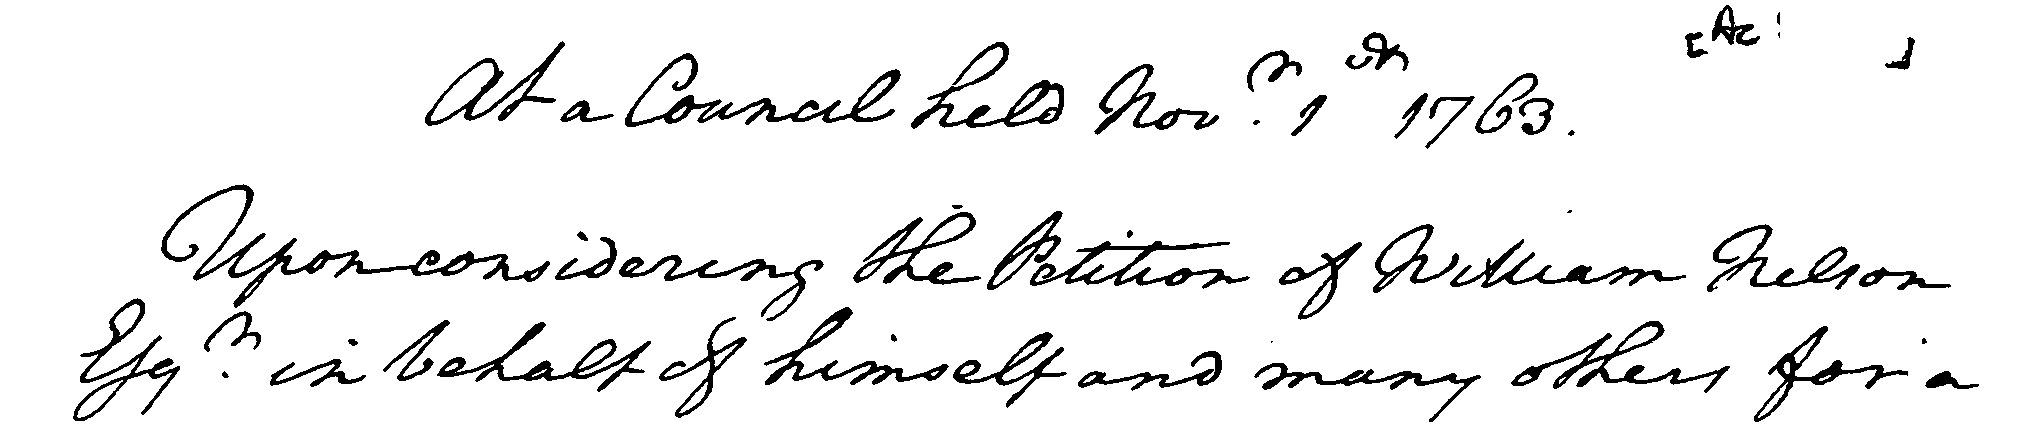 [Ac: ]
At a Council held Novr. 1st 1763.
Upon considering the Petition of William Nelson
Esqr. in behalf of himself and many others for a